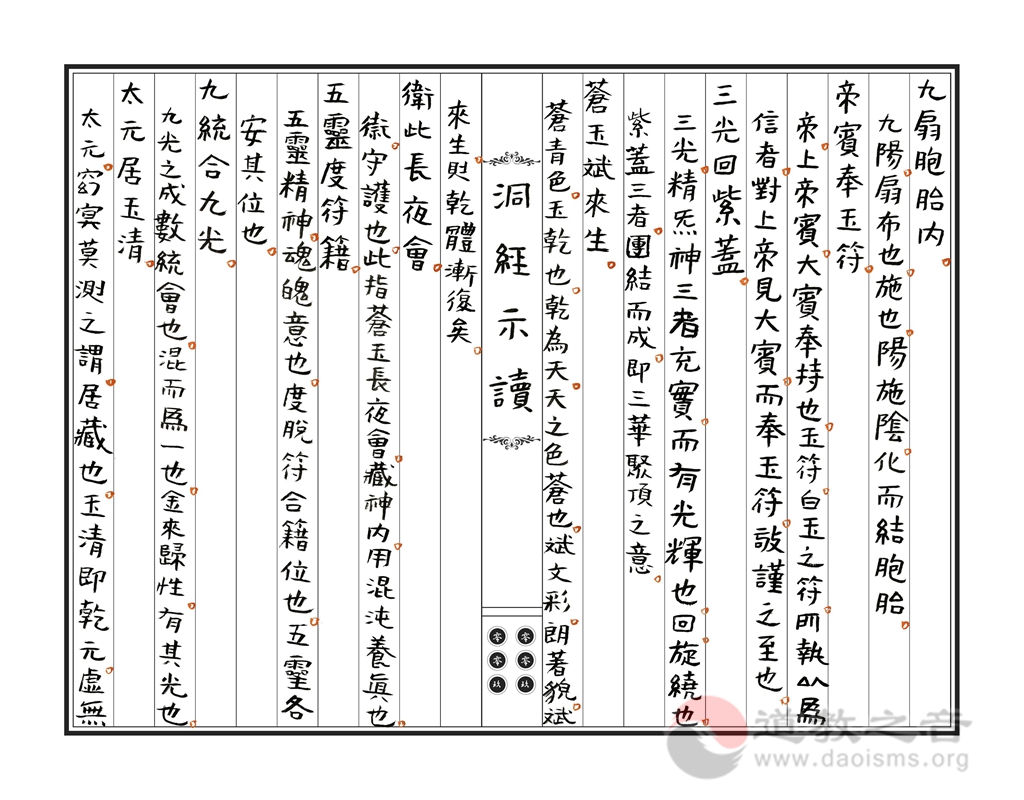 九扇胞胎内
九陽扇布也施也陽施陰化而結胞胎
帝賓奉玉符
帝上帝賓大賓奉持也玉符白玉之符所執以爲
信者對上帝見大賓而奉玉符敬謹之至也
三光回紫蓋
三光精炁神三者充實而有光輝也回旋繞也
紫蓋三者團結而成即三華聚頂之意
蒼玉斌來生
蒼青色玉乾也乾為天天之色蒼也斌文彩朗著貌斌
洞経示讀
零零
零零
玖玖
來生則乾體漸復矣
衛此長夜會
衛守護也此指蒼玉長夜會藏神内用混沌養真也
五靈度符籍
五靈精神魂魄意也度脫符合籍位也五靈各
安其位也
九統合九光
九光之成數統會也混而爲一也金來歸性有其光也
太元居玉清
太元窈冥莫測之謂居藏也玉清即乾元虛無
道教之音
www.daoisms.org